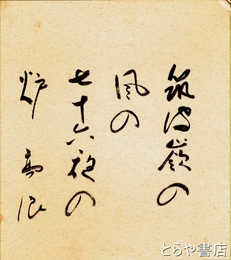 筑波嶺の
風の
七十六夜の
炉
とらや書店